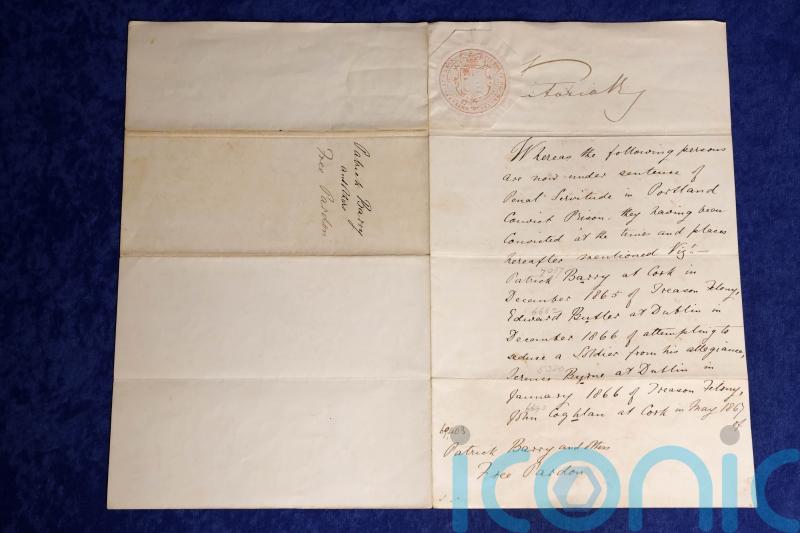 Patrick Barry
and others
Free Pardon
Victoria R
Whereas the following persons
are now under sentence of
Penal Servitude in Portland
Convict Prison. they having been
Convicted at the times and places
hereafter mentioned Viz:—
Patrick Barry at Cork in
December 1865 of Treason Felony,
Edward Butler at Dublin in
December 1866 of attempting to
seduce a Soldier from his allegiance,
Terence Byrne at Dublin in
January 1866 of Treason Felony,
John Coghlan at Cork in May 1867
of
Patrick Barry and others
Free Pardon
iconic